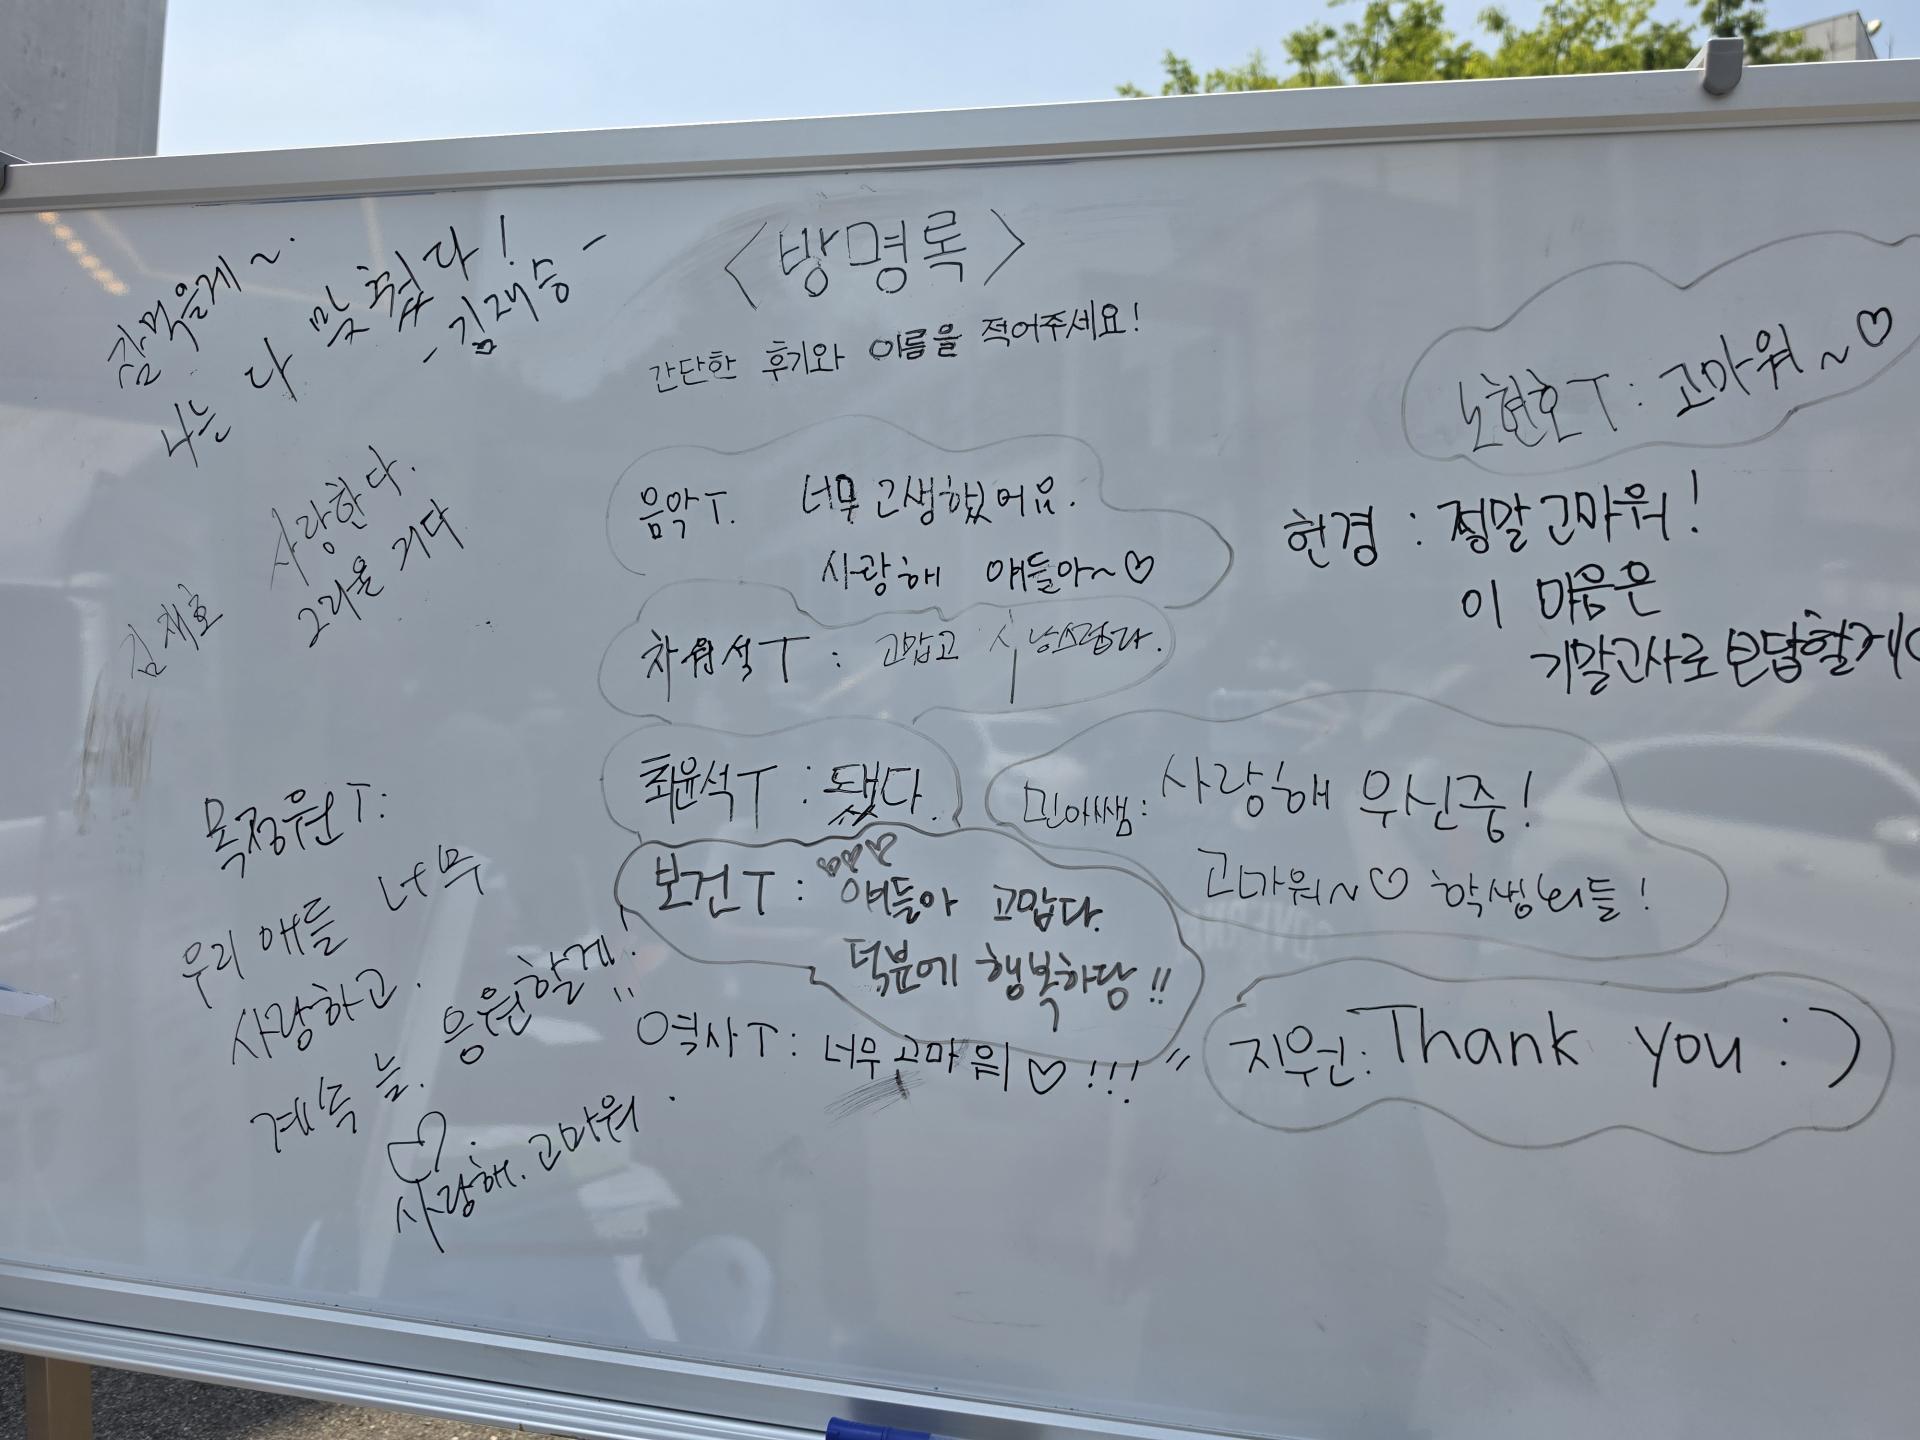 <방명록>
간단한 후기와 이름을 적어주세요!
잘먹을게~
나는 다 맞췄다!
- 김재승 -
사랑한다.
그리울 거다
김재호
목정원T:
우리 애들 너무
사랑하고.
계속 늘. 응원할게!!
♡
사랑해. 고마워.
음악T. 너무 고생했어요.
사랑해 얘들아~♡
차원석T : 고맙고 사랑스럽다.
최윤석T : 됐다.
보건T : ♡♡♡ 얘들아 고맙다.
덕분에 행복하당!!
"역사T: 너무 고마워♡!!!"
노현호T: 고마워~♡
헌경 : 정말고마워!
이 마음은
기말고사로 보답할게
민아쌤: 사랑해 위신중!
고마워~♡ 학생회들!
지원: Thank you :)